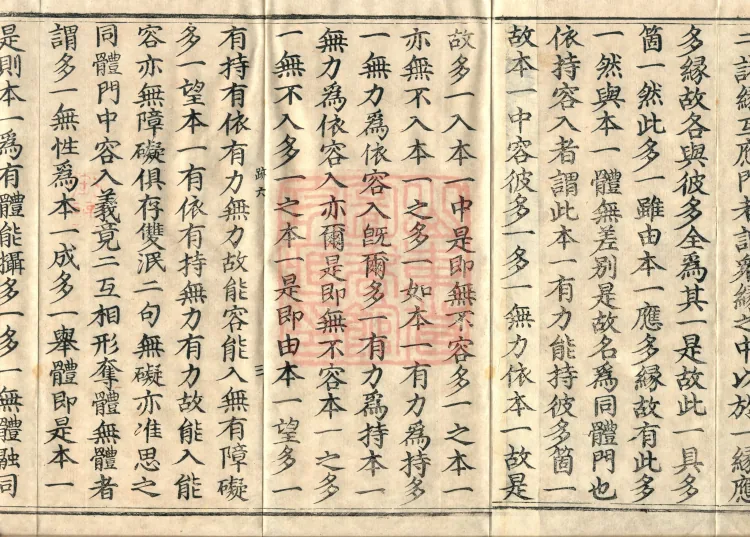 緣互應門者衆緣之中以於一緣應
多緣故各與彼多全爲其一是故此一具多
箇一然此多一雖由本一應多緣故有此多
一然與本一體無差別是故名爲同體門也
依持容入者謂此本一有力能持彼多箇一
故本一中容彼多一多一無力依本一故是
故多一入本一中是即無不容多一之本一
亦無不入本一之多一如本一有力爲持多
一無力爲依容入既爾多一有力爲持本一
無力爲依容入亦爾是即無不容本一之多
一無不入多一之本一是即由本一望多一
跡六 三
有持有依有力無力故能容能入無有障礙
多一望本一有依有持無力有力故能入能
容亦無障礙俱存雙泯二句無礙亦准思之
同體門中容入義竟二互相形奪體無體者
謂多一無性爲本一成多一舉體即是本一
是則本一爲有體能攝多一多一無體融同